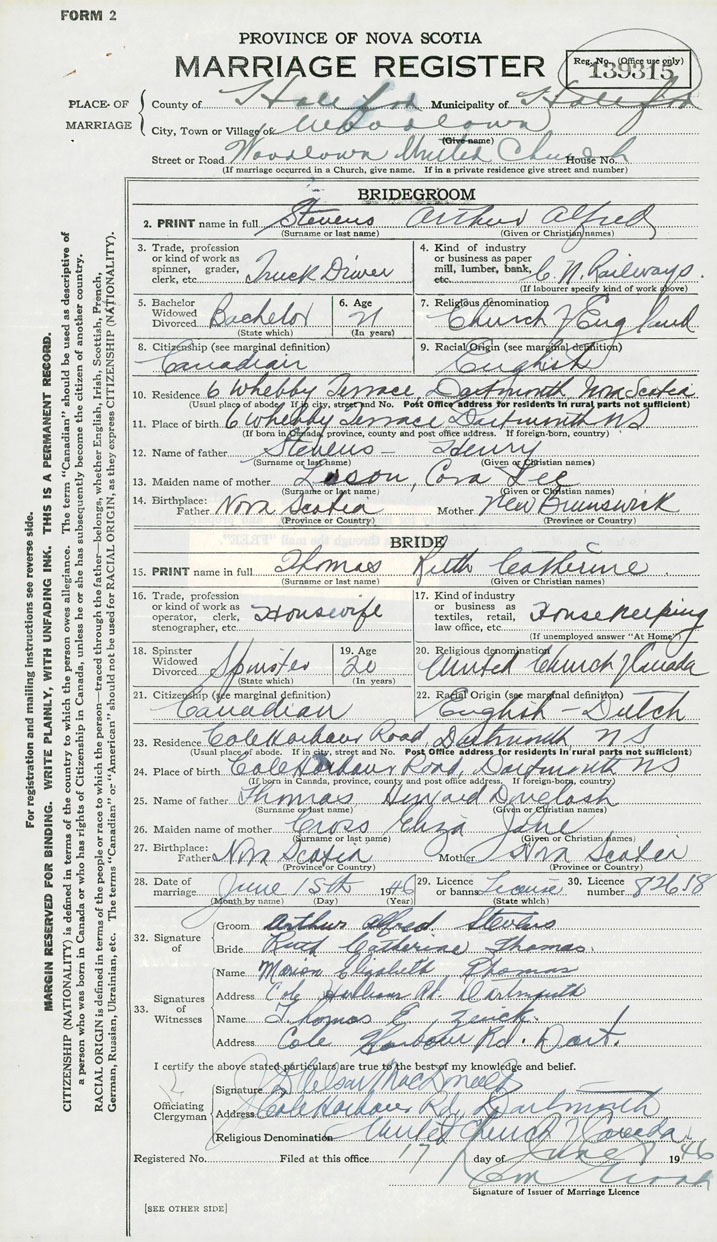 FORM 2
PROVINCE OF NOVA SCOTIA
MARRIAGE REGISTER
Reg. No. (Office use only)
139315
PLACE OF MARRIAGE
County of Halifax Municipality of Halifax
City, Town or Village of Woodlawn
(Give name)
Street or Road Woodlawn United Church House No.
(If marriage occurred in a Church, give name. If in a private residence give street and number)
BRIDEGROOM
2. PRINT name in full Stevens Arthur Alfred
(Surname or last name) (Given or Christian names)
3. Trade, profession or kind of work as spinner, grader, clerk, etc. Truck Driver
4. Kind of industry or business as paper mill, lumber, bank, etc. C. N. Railways.
(If labourer specify kind of work above)
5. Bachelor Widowed Divorced Bachelor
(State which)
6. Age 21
(In years)
7. Religious denomination Church of England
8. Citizenship (see marginal definition) Canadian
9. Racial Origin (see marginal definition) English
10. Residence 6 Whebby Terrace, Dartmouth Nova Scotia
(Usual place of abode. If in city, street and No. Post Office address for residents in rural parts not sufficient)
11. Place of birth 6 Whebby Terrace Dartmouth NS
(If born in Canada, province, county and post office address. If foreign-born, country)
12. Name of father Stevens - Henry
(Surname or last name) (Given or Christian names)
13. Maiden name of mother Cora Lee
(Surname or last name) (Given or Christian names)
14. Birthplace: Father Nova Scotia Mother New Brunswick
(Province or Country) (Province or Country)
BRIDE
15. PRINT name in full Thomas Ruth Catherine
(Surname or last name) (Given or Christian names)
16. Trade, profession or kind of work as operator, clerk, stenographer, etc. Housewife
17. Kind of industry or business as textiles, retail, law office, etc. Housekeeping
(If unemployed answer "At Home")
18. Spinster Widowed Divorced Spinster
(State which)
19. Age 20
(In years)
20. Religious denomination United Church of Canada
21. Citizenship (see marginal definition) Canadian
22. Racial Origin (see marginal definition) English - Dutch
23. Residence Cole Harbour Road, Dartmouth, NS
(Usual place of abode. If in city, street and No. Post Office address for residents in rural parts not sufficient)
24. Place of birth Cole Harbour Road, Dartmouth NS
(If born in Canada, province, county and post office address. If foreign-born, country)
25. Name of father Thomas
(Surname or last name) (Given or Christian names)
26. Maiden name of mother Cross Eliza Jane
(Surname or last name) (Given or Christian names)
27. Birthplace: Father Nova Scotia Mother Nova Scotia
(Province or Country) (Province or Country)
28. Date of marriage June 15th 1946
(Month by name) (Day) (Year)
29. Licence or banns License
(State which)
30. Licence number 82618
32. Signature of
Groom Arthur Alfred Stevens
Bride Ruth Catherine Thomas.
33. Signatures of Witnesses
Name Marion Elizabeth Thomas
Address Cole Harbour Rd. Dartmouth
Name Thomas E.
Address Cole Harbour Rd. Dart.
I certify the above stated particulars are true to the best of my knowledge and belief.
Officiating Clergyman
Signature
Address Cole Harbour Rd, Dartmouth
Religious Denomination United Church of Canada
Registered No. Filed at this office 17 day of June 1946
Signature of Issuer of Marriage Licence
[SEE OTHER SIDE]
For registration and mailing instructions see reverse side.
MARGIN RESERVED FOR BINDING. WRITE PLAINLY, WITH UNFADING INK. THIS IS A PERMANENT RECORD.
CITIZENSHIP (NATIONALITY) is defined in terms of the country to which the person owes allegiance. The term "Canadian" should be used as descriptive of
a person who was born in Canada or who has rights of Citizenship in Canada, unless he or she has subsequently become the citizen of another country.
RACIAL ORIGIN is defined in terms of the people or race to which the person—traced through the father—belongs, whether English, Irish, Scottish, French,
German, Russian, Ukrainian, etc. The terms "Canadian" or "American" should not be used for RACIAL ORIGIN, as they express CITIZENSHIP (NATIONALITY).